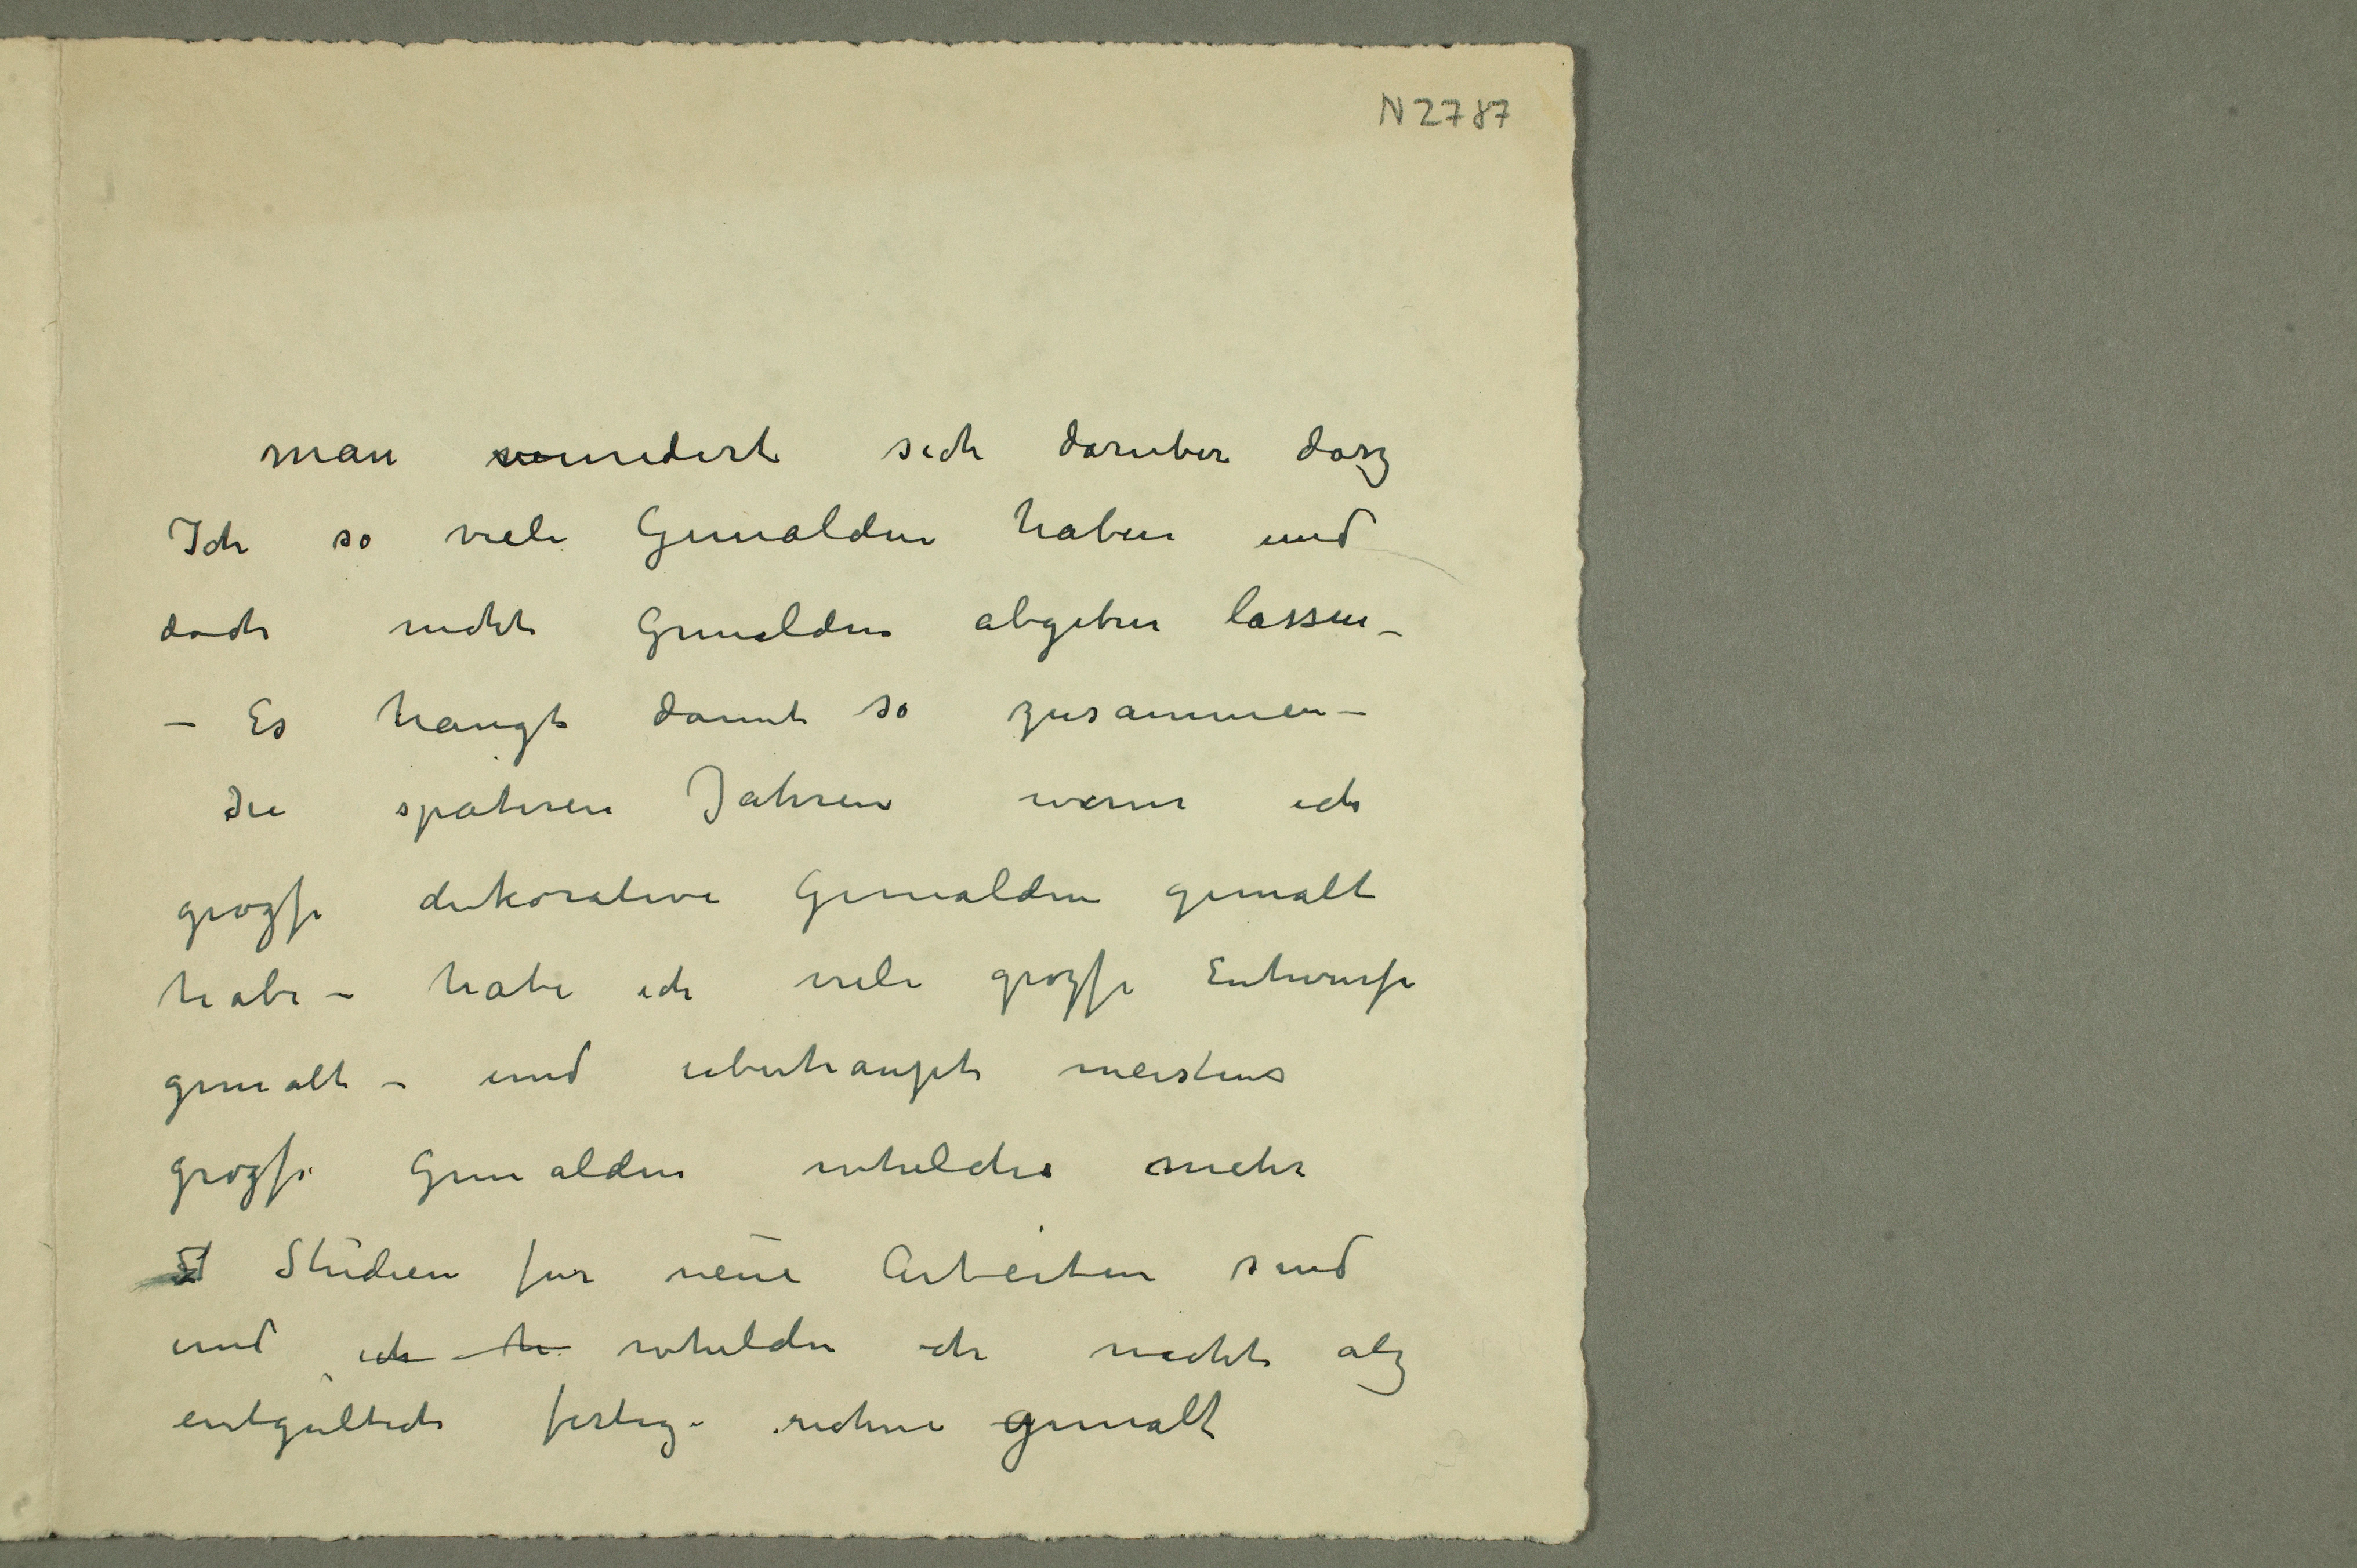 N 2787
man wundert sich daruber dasz
Ich so viele Gemälden haben und
doch nicht Gemälden abgeben lassen –
– Es hangt damit so zusammen –
Die spateren Jahren wenn ich
grozse dekorative Gemalden gemalt
habe – habe ich viele grozse Entwurfe
gemalt – und uberhaupt meistens
grozse Gemalden whelche mehr
St Studien fur neue Arbeiten sind
und ich h whelche ich nicht alz
entgültich fertig
gemalt